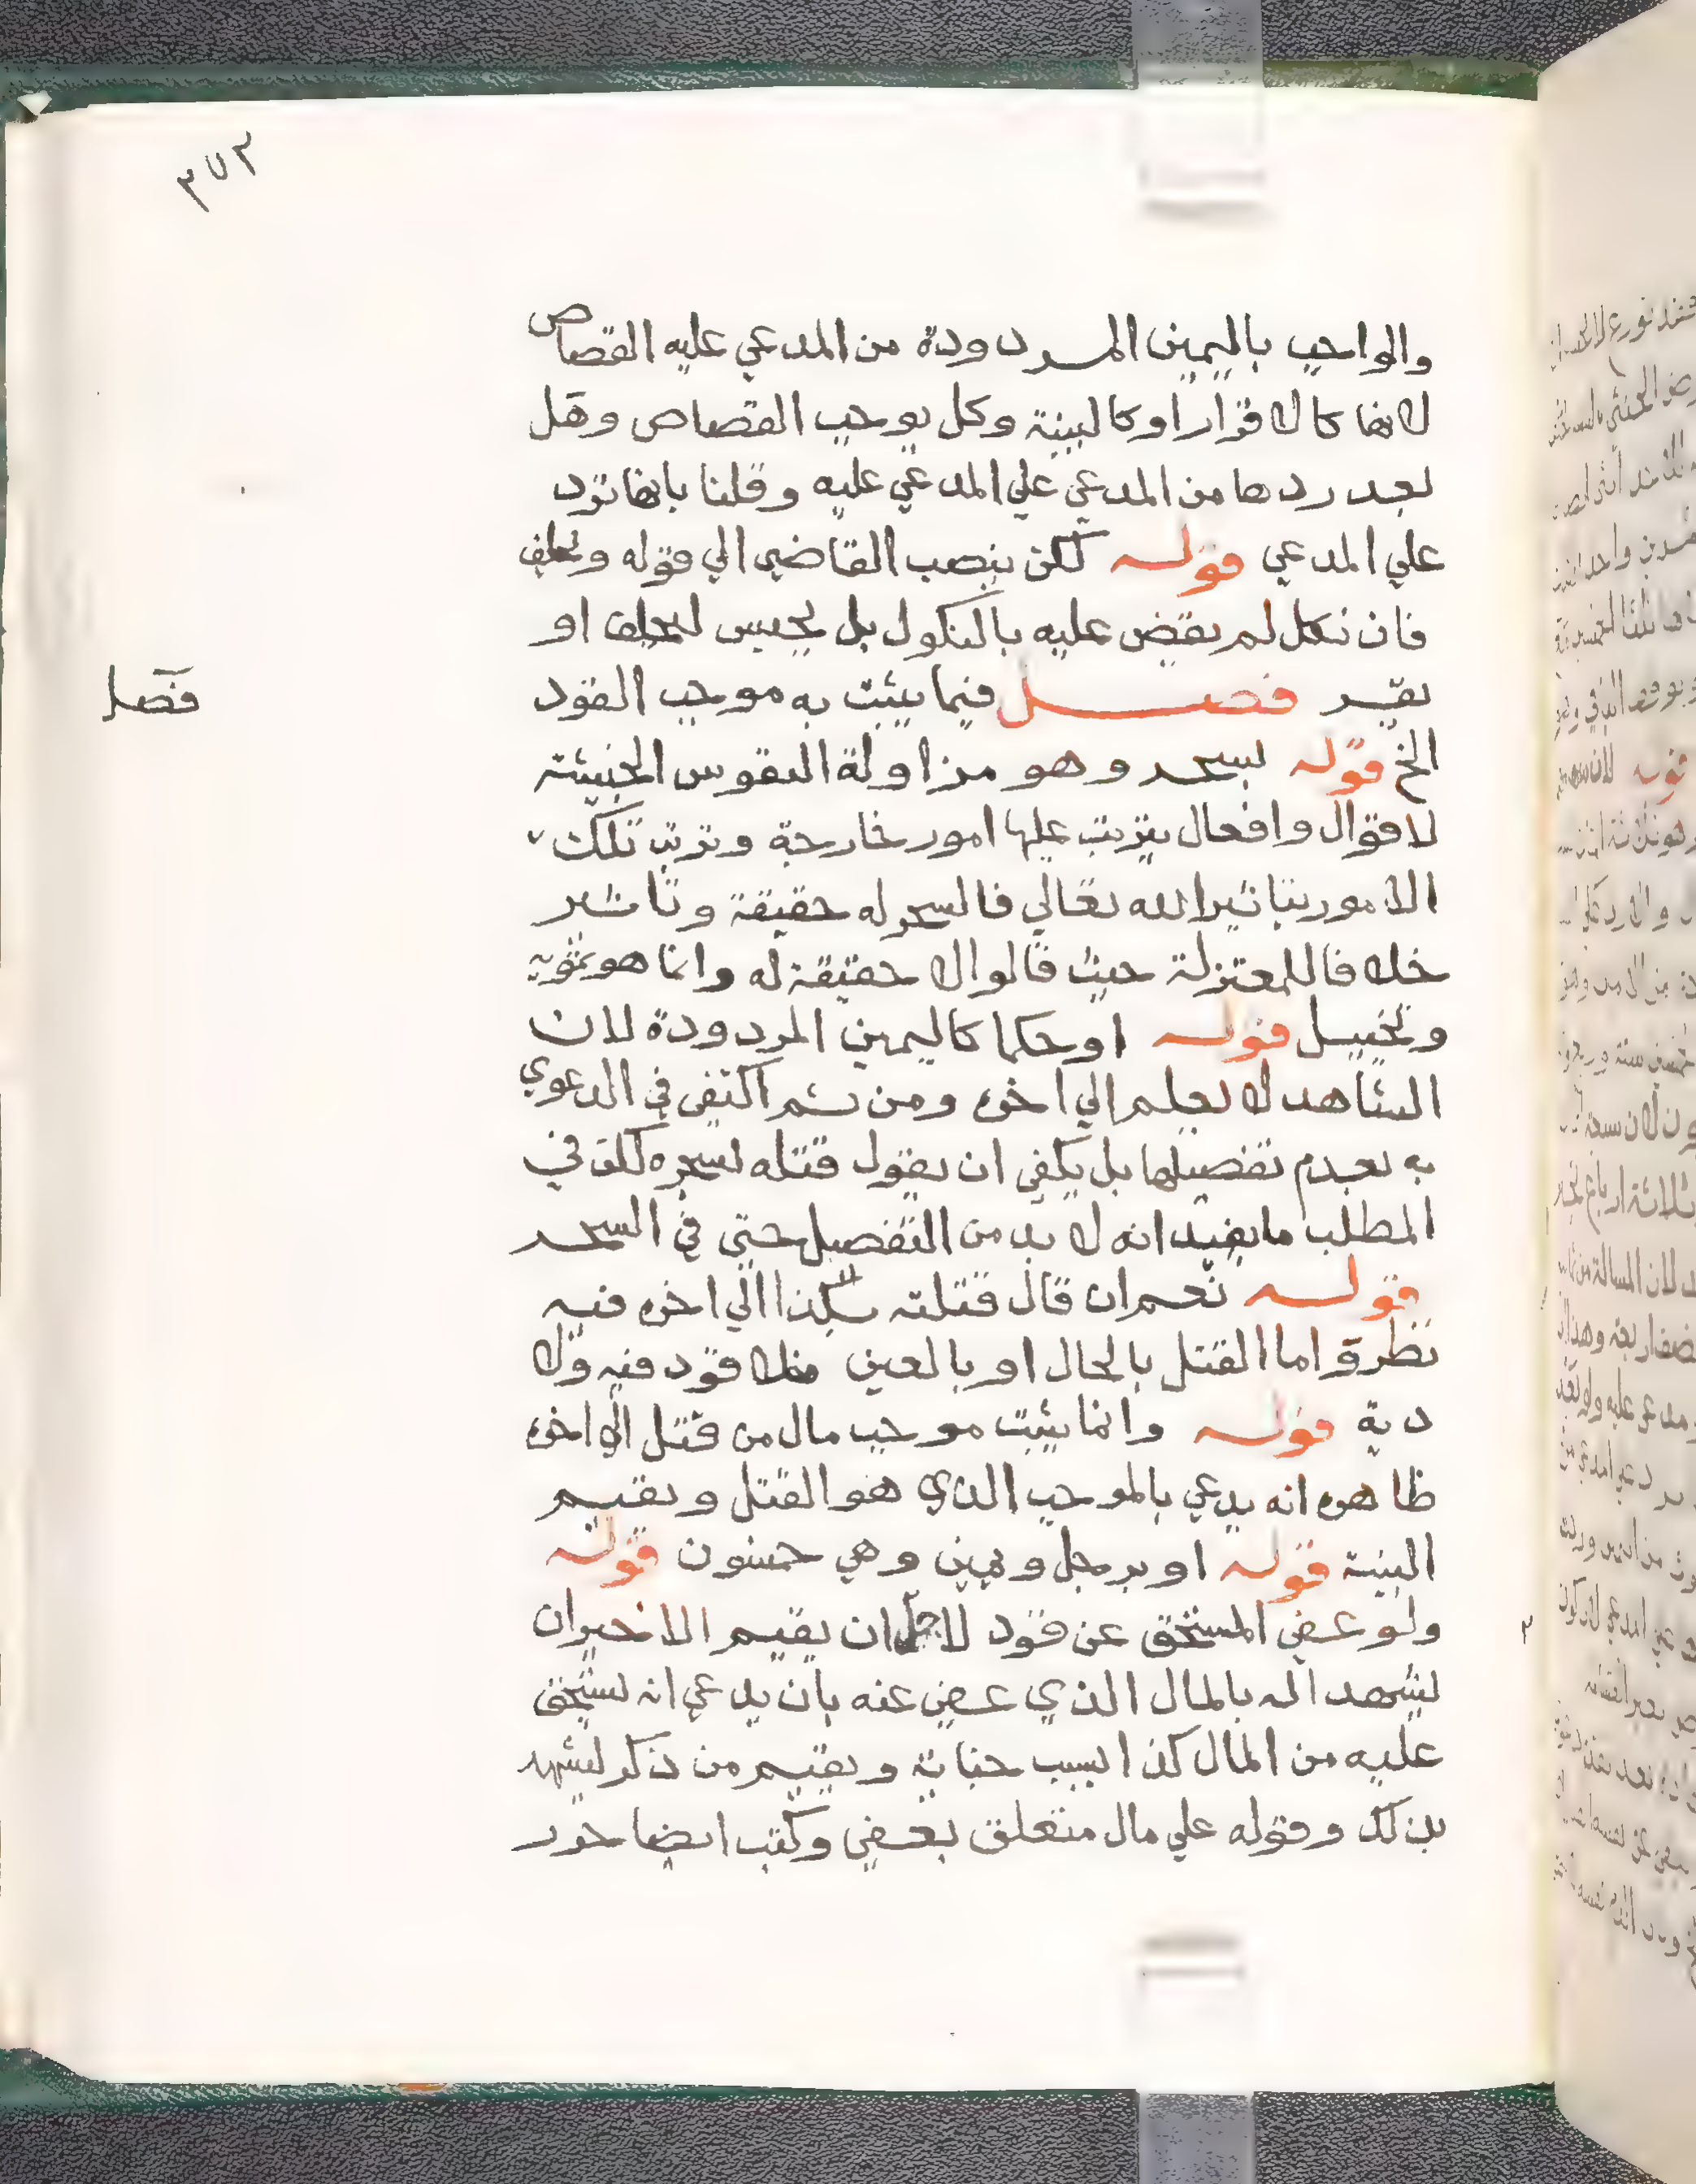 ٣٧٢
والواجب باليمين المردودة من المدعي عليه القصاص
لانها كالاقرار او كالبينة وكل يوجب القصاص وهل
بعد ردها من المدعي علي المدعي عليه وقلنا بانها ترد
علي المدعي قوله لكن ينصب القاضي الي قوله ويحلف
فان نكل لم يقض عليه بالنكول بل يحبس ليحلف او
يقر فصل فيما يثبت به موجب القود
فصل
الخ قوله بسحر وهو مزاولة النفوس الخبيثة
لاقوال وافعال يترتب عليها امور خارجة وترتب تلك
الامور بتاثير الله تعالي فالسحر له حقيقة وتاثير
خلافا للمعتزلة حيث قالوا لا حقيقة له وانما هو تمويه
وتخييل قوله او حكما كاليمين المردودة لان
الشاهد لا يعلم الي اخره ومن ثم اكتفي في الدعوي
به بعدم تفصيلها بل يكفي ان يقول قتله بسحره لكن في
المطلب ما يفيد انه لا بد من التفصيل حتي في السحر
قوله نعم ان قال قتلته بكذا الي اخره فيه
نظر ق اما القتل بالحال او بالعين فلا قود فيه ولا
دية قوله وانما يثبت موجب مال من قتل الي اخره
ظاهره انه يدعي بالموجب الذي هو القتل ويقيم
البينة قوله او برجل ويمين وهي خمسون قوله
ولو عفي المستحق عن قود لاجل ان يقيم الاخيران
ليشهدا له بالمال الذي عفي عنه بان يدعي انه يستحق
عليه من المال كذا بسبب جناية ويقيم من ذكر ليشهد
بذلك وقوله علي مال متعلق بعفي وكتب ايضا حور